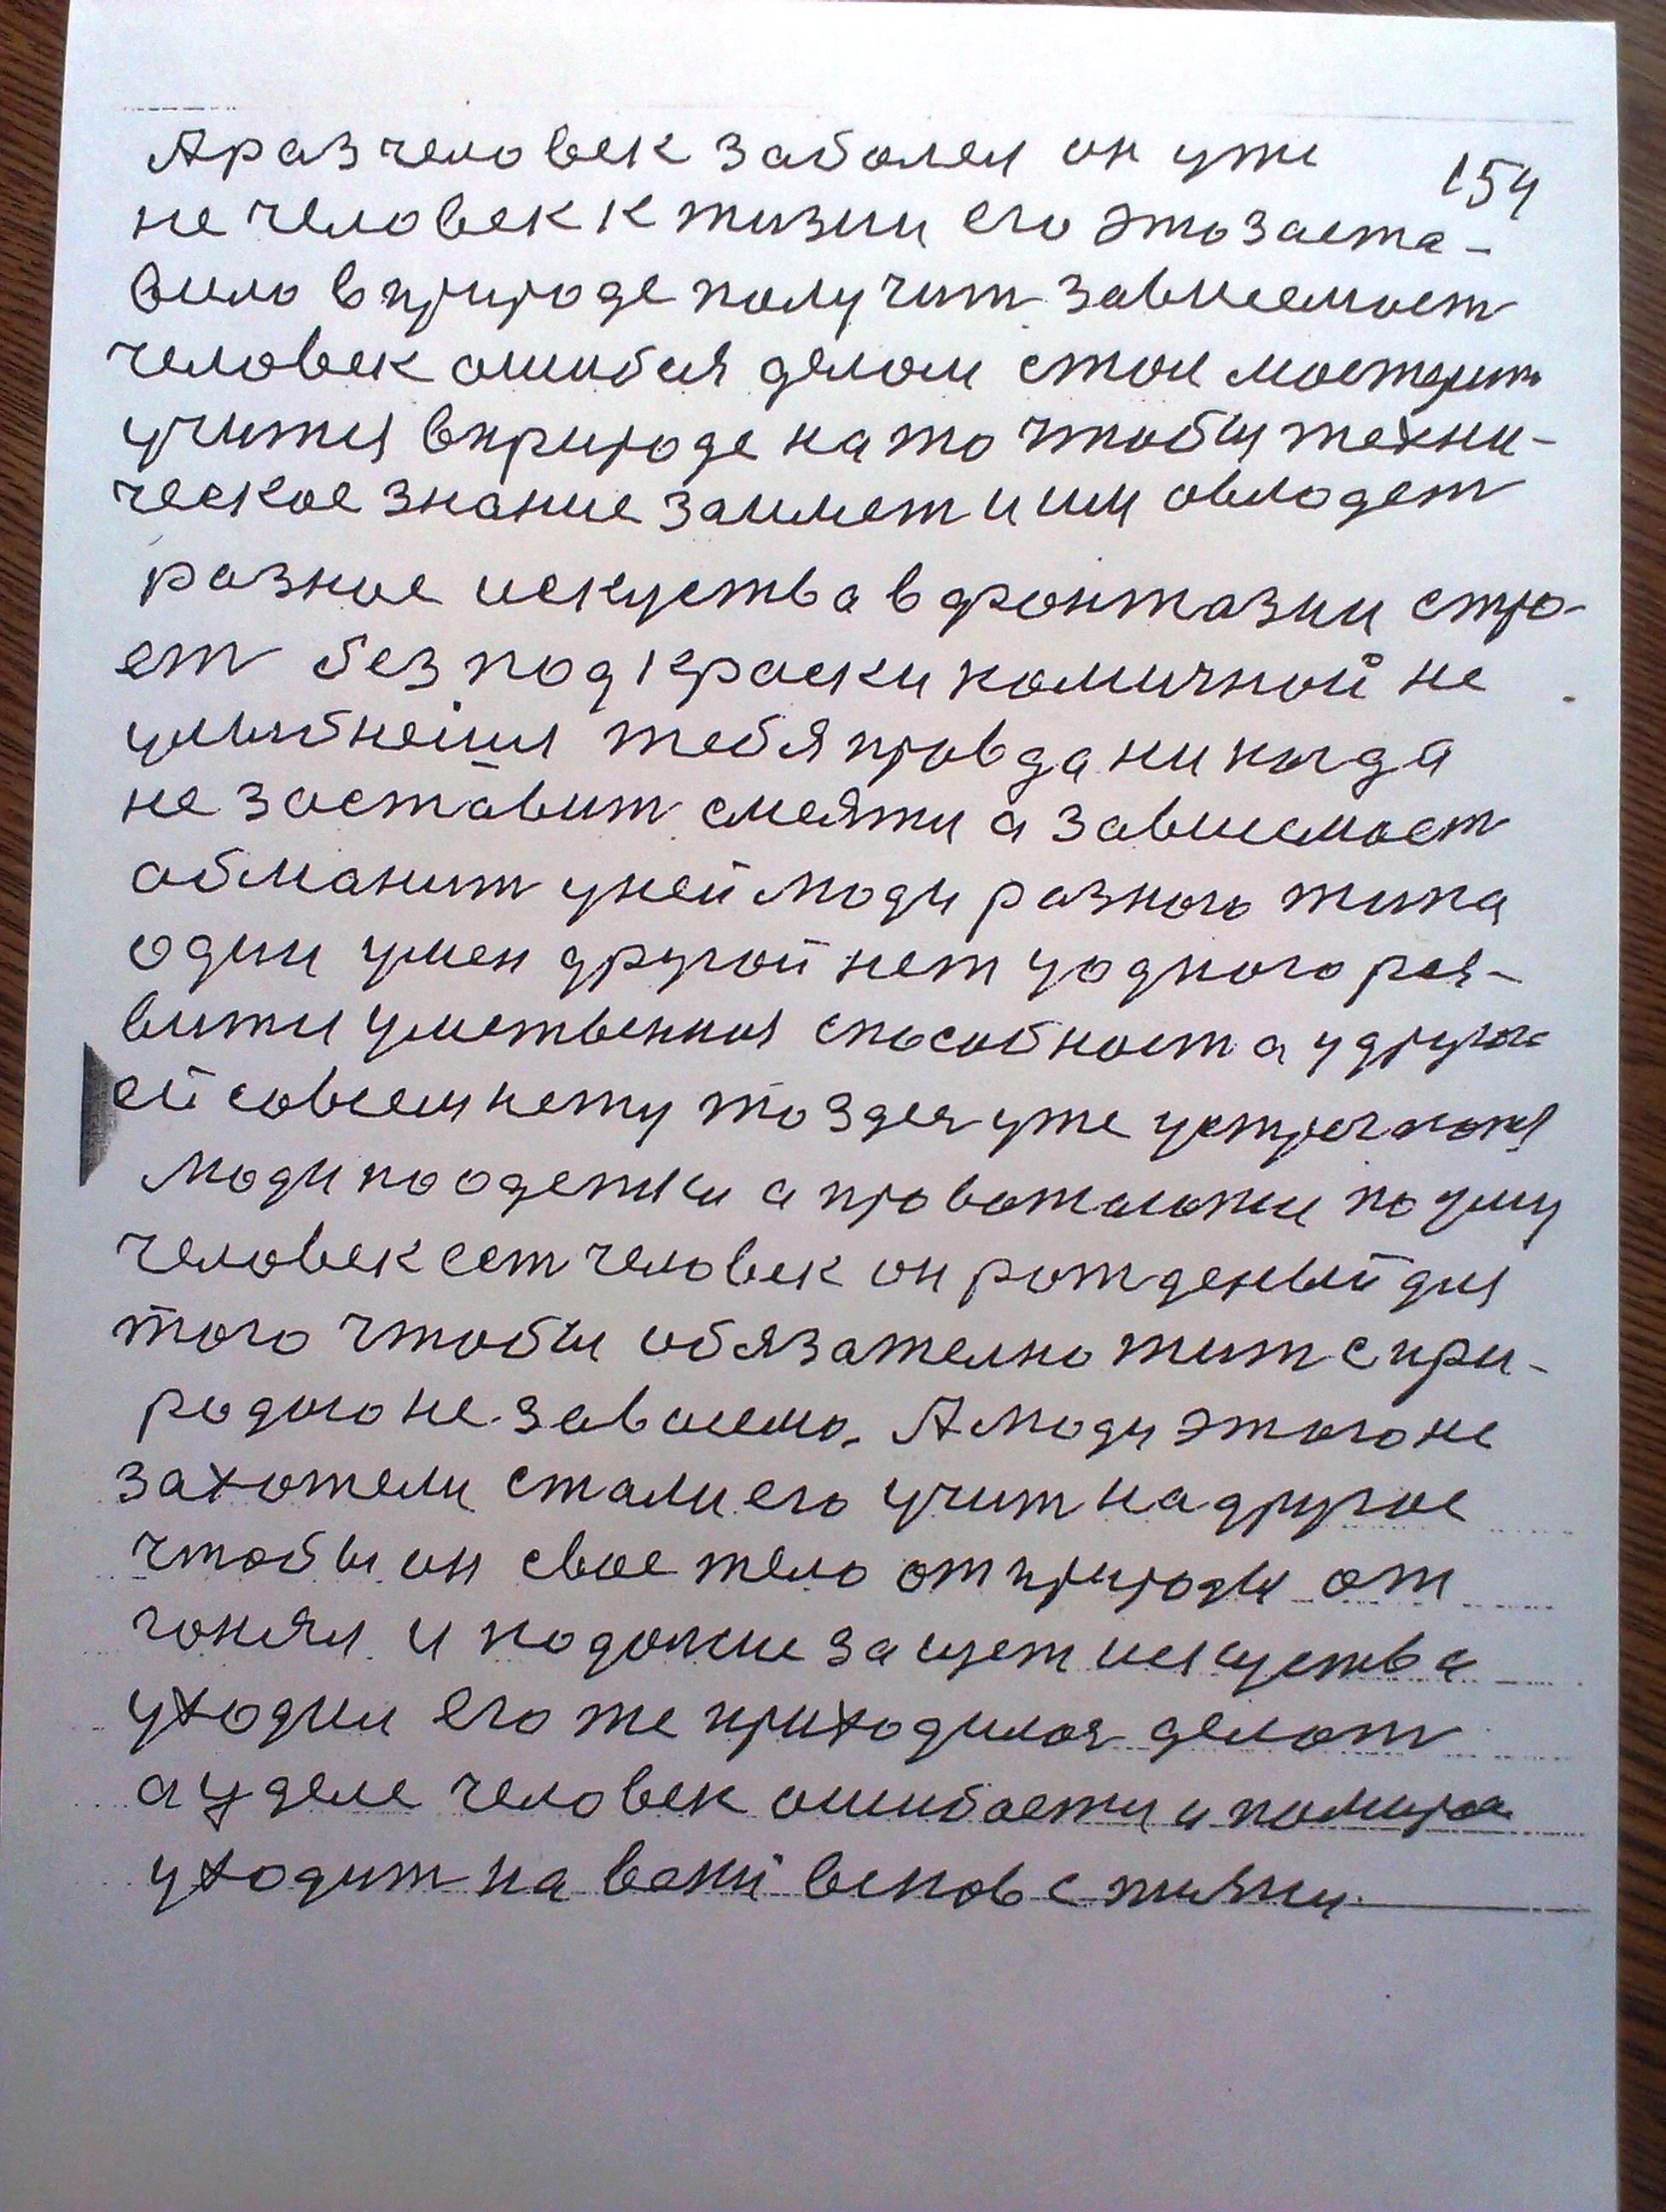 А раз человек заболел он уже
154
не человек к жизни его это заста-
вило в природе получит зависемост
человек ошибся делом стол мостерит
учится в природе на то чтобы техни-
ческое знание заимет и им овлодет
розные искуства в фронтазии стро-
ет без подкроски комичной не
улыбнешся тебя провда никогда
не зоставит смеятся а зависемост
обманит у ней люди разного типа
один умен другой нет у одного роз-
вития умственная способност а у друго
ей совсем нету то здея уже устречают
люди по одежки а провожают по уму
человек ест человек он рожденый для
того чтобы обязателно жит с при-
родою не зависемо. А люди этого не
захотели стали его учит на другое
чтобы он свое тело от природы от
гонял и подолше за щет искуства
уходил его же приходилоя делат
а у деле человек ошибается и помирая
уходит на веки веков с жизни